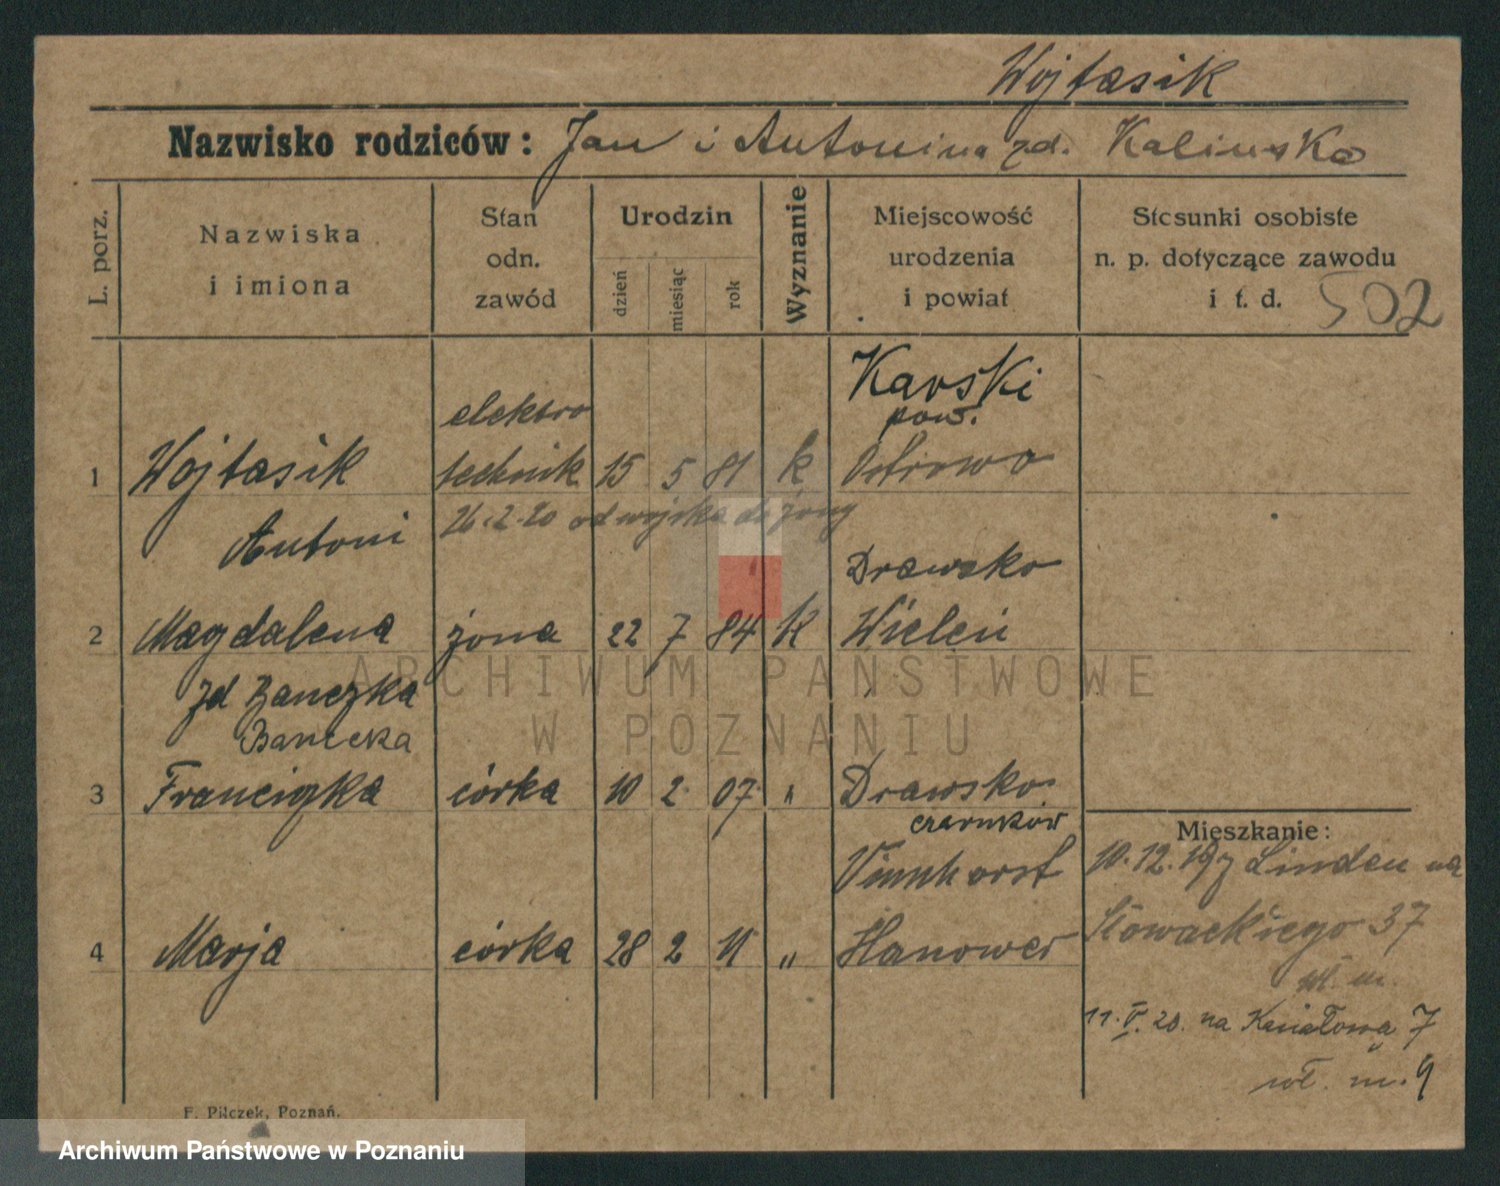 Wojtasik
Nazwisko rodziców: Jan i Antonina zd. Kalinska
L. porz.
Nazwiska
i imiona
Stan
odn.
zawód
Urodzin
dzień
miesiąc
rok
Wyznanie
Miejscowość
urodzenia
i powiat
Stosunki osobiste
n. p. dotyczące zawodu
i t. d.
502
1 Wojtasik elektro technik 15 5 81 k Karski pow. Ostrowo
Antoni 26.2.20 od wojska do żony
2 Magdalena żona 22 7 84 k Drawsko Wieleń
zd Banczka
Banecka
3 Franciszka córka 10 2 07 " Drawsko
czarnków
4 Marja córka 28 2 11 " Vinnhorst Hanower
Mieszkanie:
10.12.19 z Linden na
Słowackiego 37
wł. m.
11.V.20. na Kanałową 7
wł. m. 9
F. Pilczek, Poznań.
ARCHIWUM PAŃSTWOWE
W POZNANIU
Archiwum Państwowe w Poznaniu